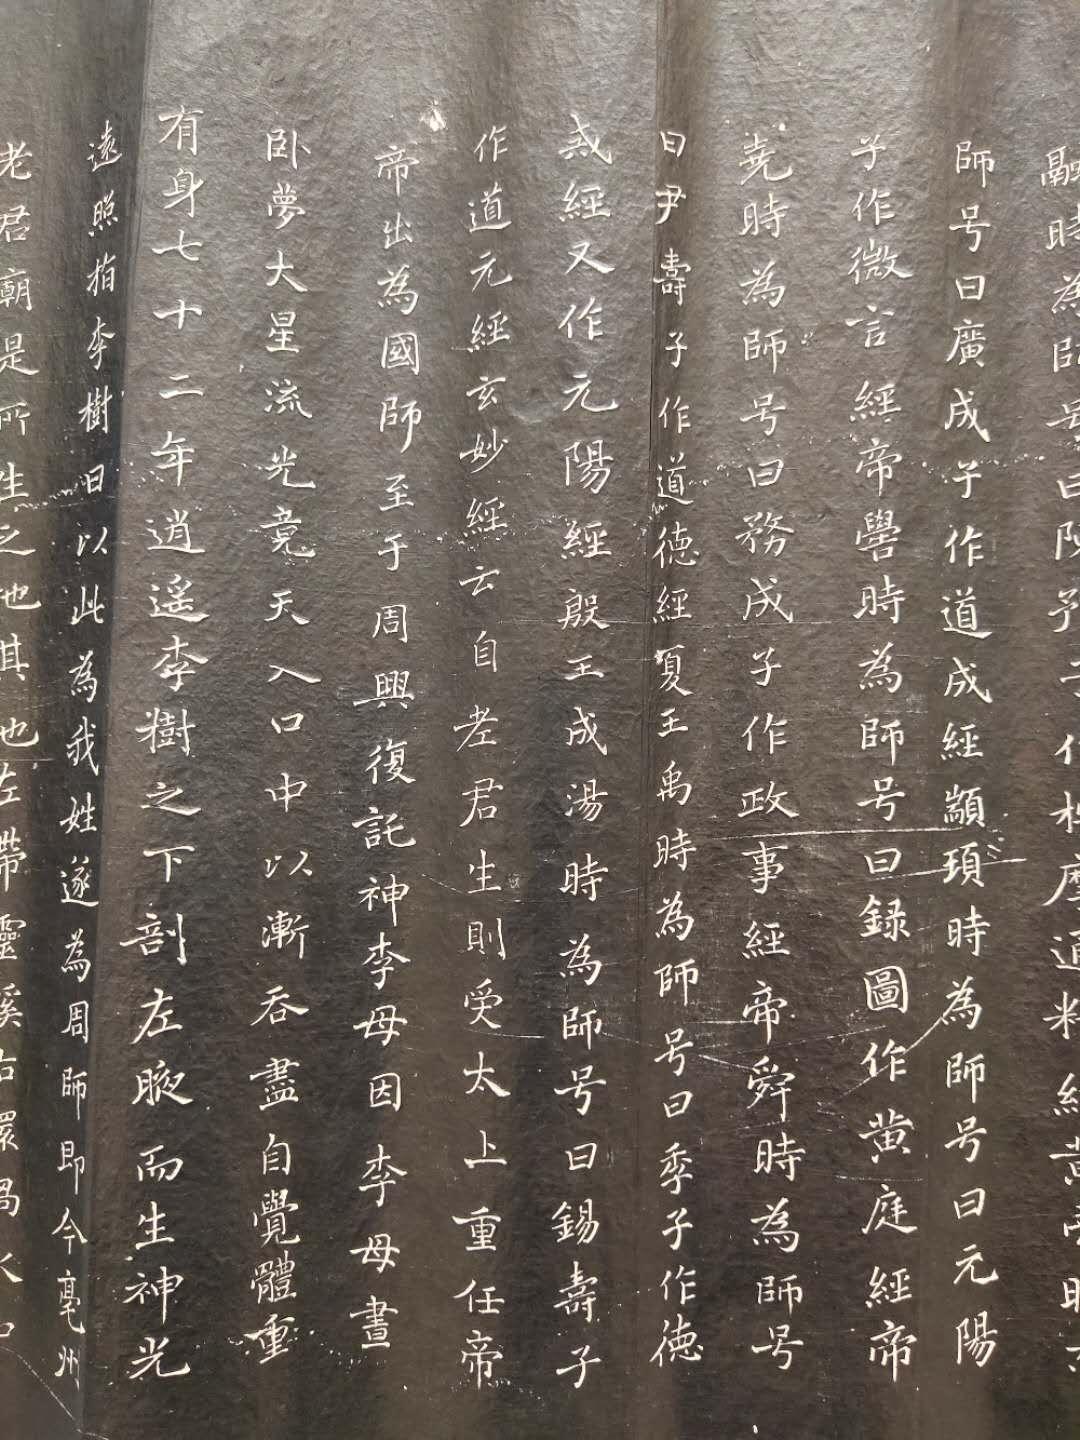 融時為師号曰
師号曰廣成子作道成經顓頊時為師号曰元陽
子作微言經帝嚳時為師号曰録圖作黄庭經帝
堯時為師号曰務成子作政事經帝舜時為師号
曰尹壽子作道德經夏王禹時為師号曰季子作德
戒經又作元陽經殷王成湯時為師号曰錫壽子
作道元經玄妙經云自老君生則受太上重任帝
帝出為國師至于周興復託神李母因李母晝
卧夢大星流光竟天入口中以漸吞盡自覺體重
有身七十二年逍遥李樹之下剖左腋而生神光
遠照指李樹曰以此為我姓遂為周師即今亳州
老君廟是所生之地其地左帶靈溪右環渦水